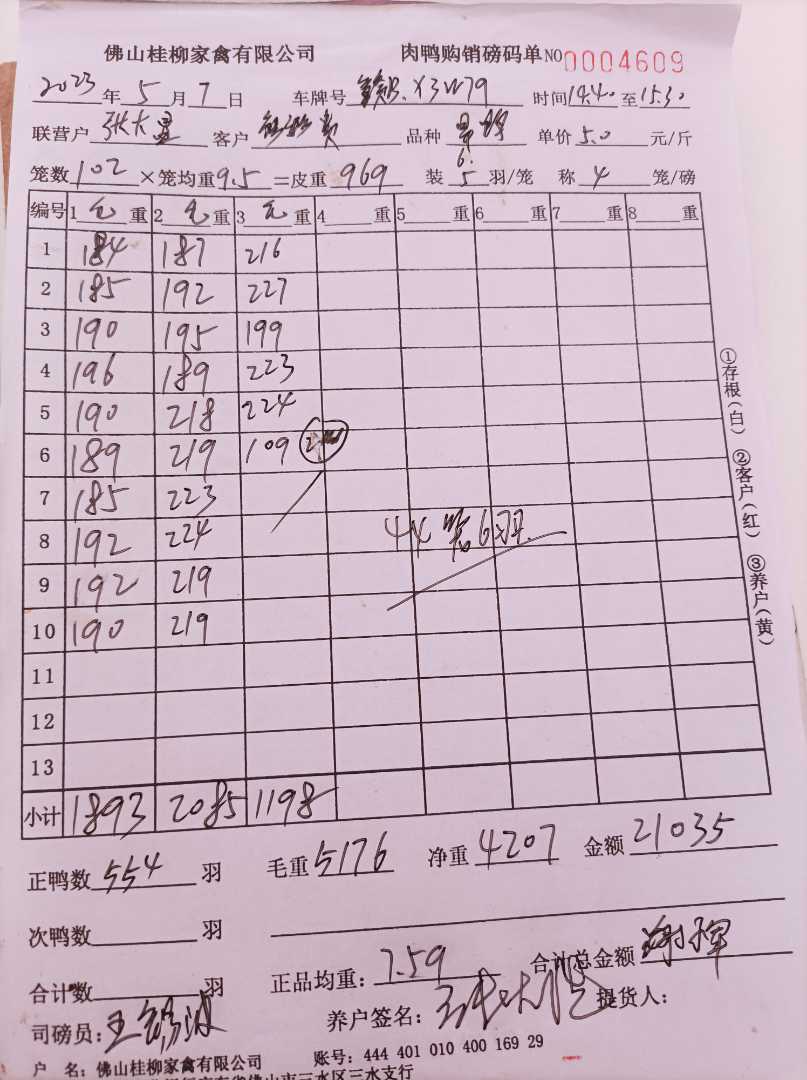 佛山桂柳家禽有限公司 肉鸭购销磅码单 NO 0004609
2023年5月7日 车牌号 X3W79 时间14.40至15.30
联营户 张大 客户 品种 单价5.0元/斤
笼数102×笼均重9.5=皮重969 装 6. 5羽/笼 称4笼/磅
编号 1毛重 2毛重 3毛重 4重 5重 6重 7重 8重
1 184 187 216
2 185 192 227
3 190 195 199
4 196 189 223
5 190 218 224
6 189 219 109 2
7 185 223
8 192 224
9 192 219
10 190 219
44笼6羽.
11
12
13
小计 1893 2085 1198
①存根(白) ②客户(红) ③养户(黄)
正鸭数554羽 毛重5176 净重4207 金额21035
次鸭数 羽
合计数 羽 正品均重:7.59 合计总金额
司磅员: 王 养户签名: 提货人:
户 名:佛山桂柳家禽有限公司 账号:444 401 010 400 169 29